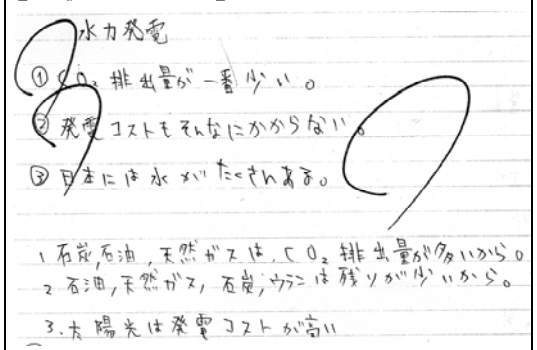 水力発電
① CO₂排出量が一番少い。
② 発電コストもそんなにかからない。
③ 日本には水がたくさんある。
1 石炭,石油,天然ガスは、CO₂排出量が多いから。
2 石油,天然ガス,石炭,ウランは残りが少いから。
3.太陽光は発電コストが高い